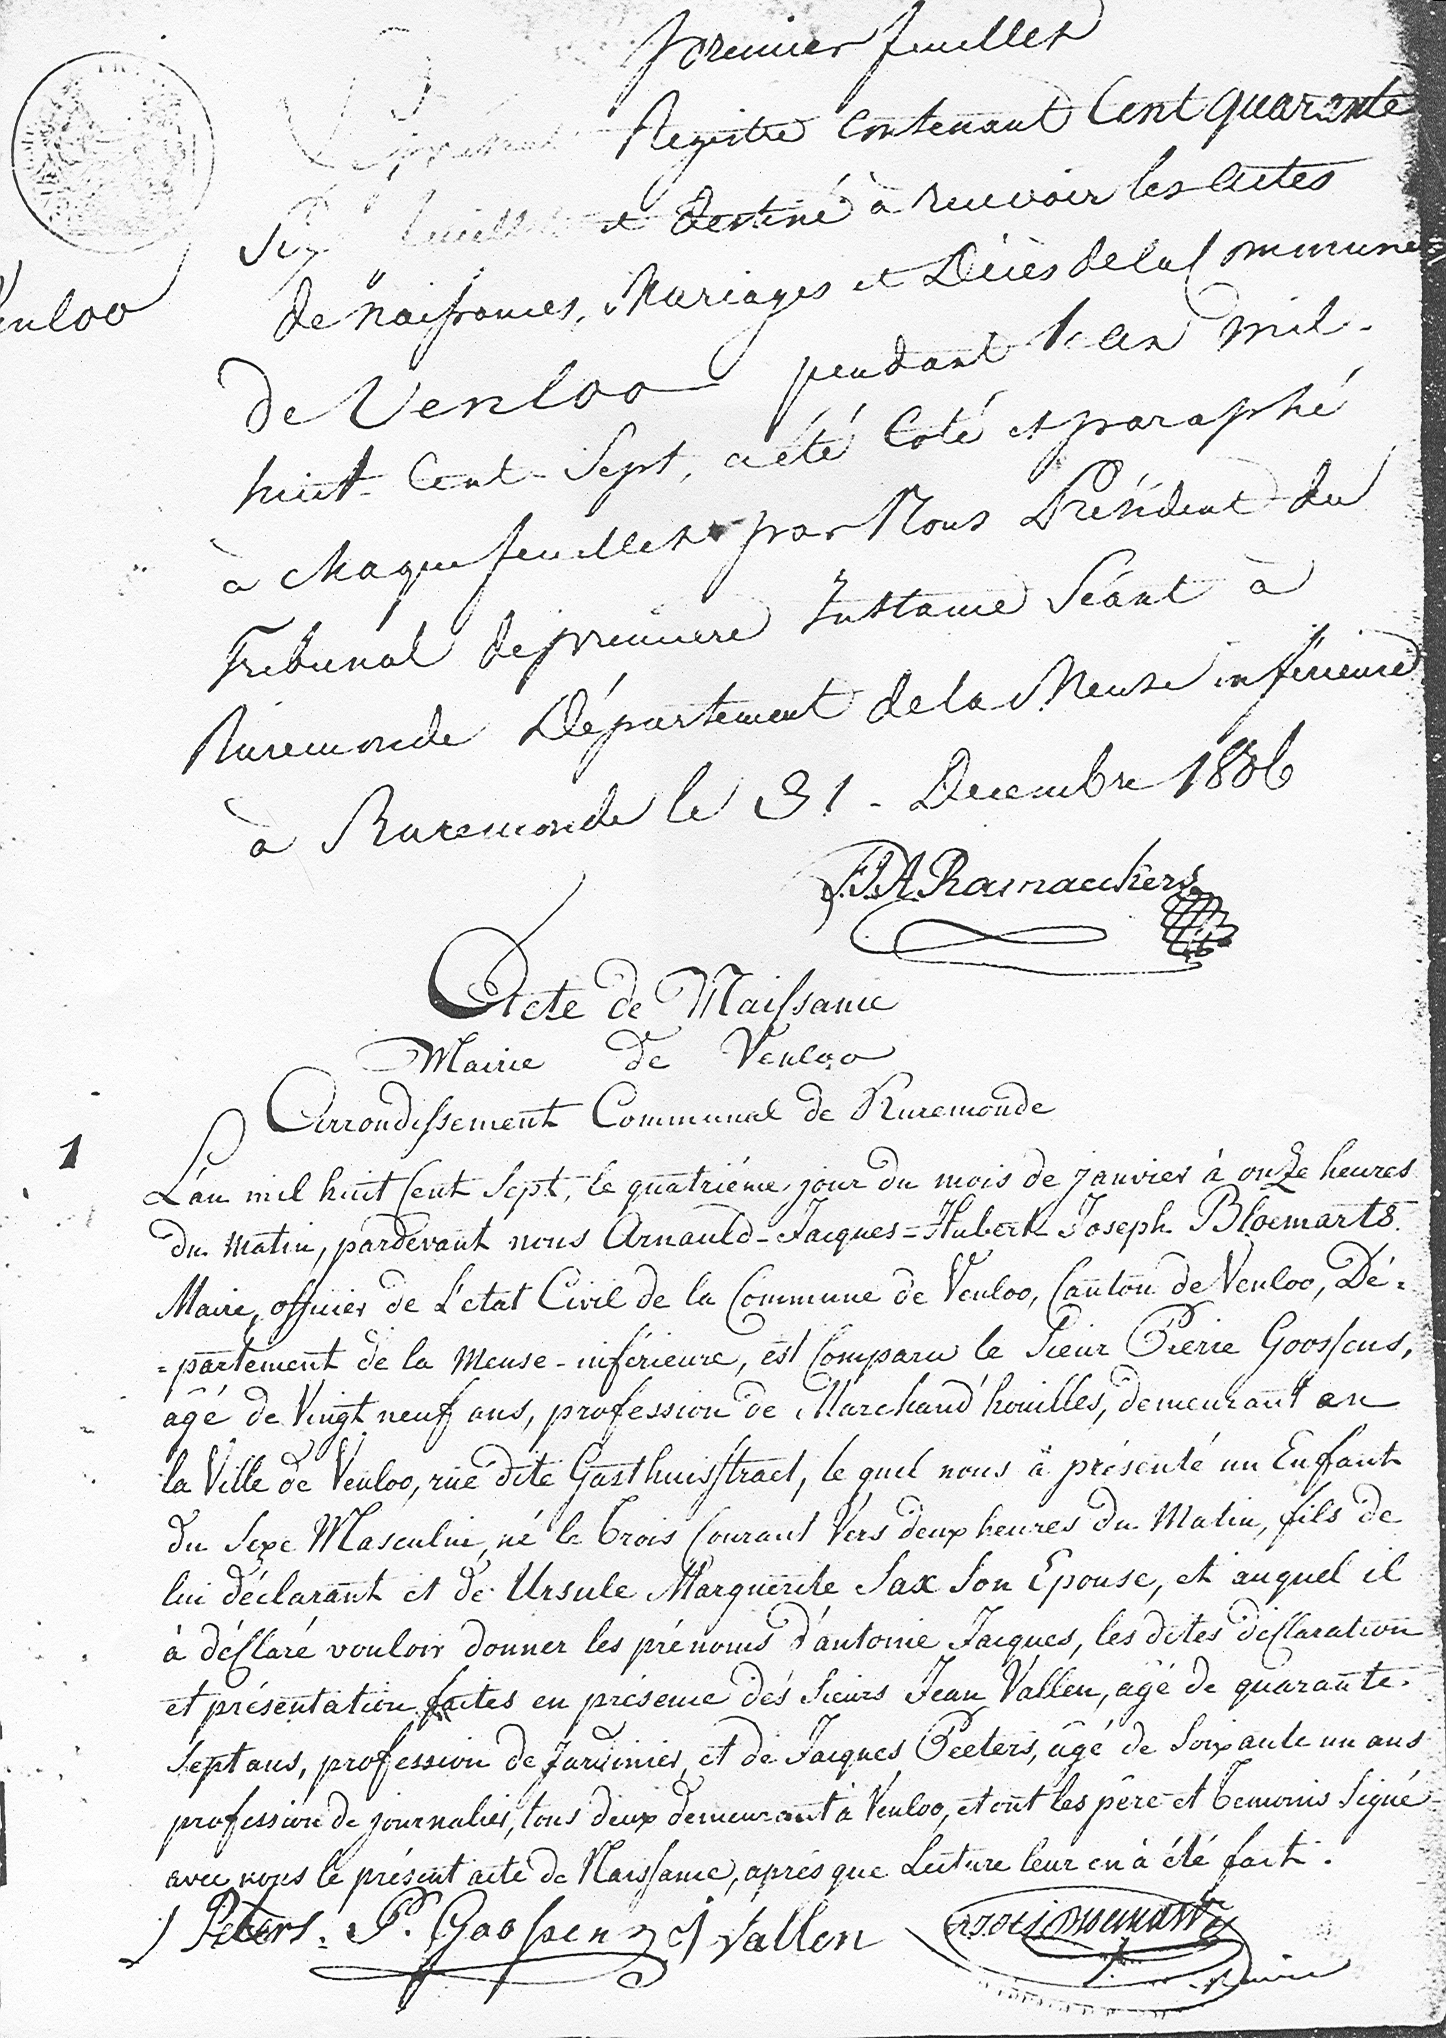 premier feuillet
Le présent Registre contenant Cent quarante
Six feuillets et destiné à recevoir les actes
Venloo
de naissances, Mariages et Décès de la Commune
de Venloo pendant l'an mil-
huit-Cent-Sept, a été Coté et paraphé
à chaque feuillet par Nous Président du
Tribunal de première Instance Séant à
Ruremonde Département de la Meuse inférieure
à Ruremonde le 31 - Decembre 1806
Ramaeckers
Acte de Naissance
Mairie de Venloo
Arrondissement Communal de Ruremonde
1
L'an mil huit Cent Sept, le quatriéme jour du mois de janvier à onze heures
du matin, pardevant nous Arnauld-Jacques-Hubert Joseph Bloemarts
Maire, officier de L'etat Civil de la Commune de Venloo, Canton de Venloo, Dé-
=partement de la Meuse-inférieure, est Comparu le Sieur Pierre Goossens,
agé de Vingt neuf ans, profession de Marchand houilles, demeurant en
la Ville de Venloo, rue dite Gasthuisstraet, le quel nous à présenté un Enfant
du Sexe Masculin, né le trois Courant Vers deux heures du Matin, fils de
lui déclarant et de Ursule Marguerite Sax Son Epouse, et auquel il
à déclaré vouloir donner les prénoms d'antoine Jacques, les dites déclaration
et présentation faites en présence des Sieurs Jean Vallen, âgé de quarante-
Sept ans, profession de Jardinier, et de Jacques Peeters, âgé de Soixante un ans
profession de journalier, tous deux demeurant à Venloo, et ont les père et temoins Signé
avec nous le présent acte de Naissance, après que Lecture leur en à été fait.
J Peters. Pr. Goossens J Vallen